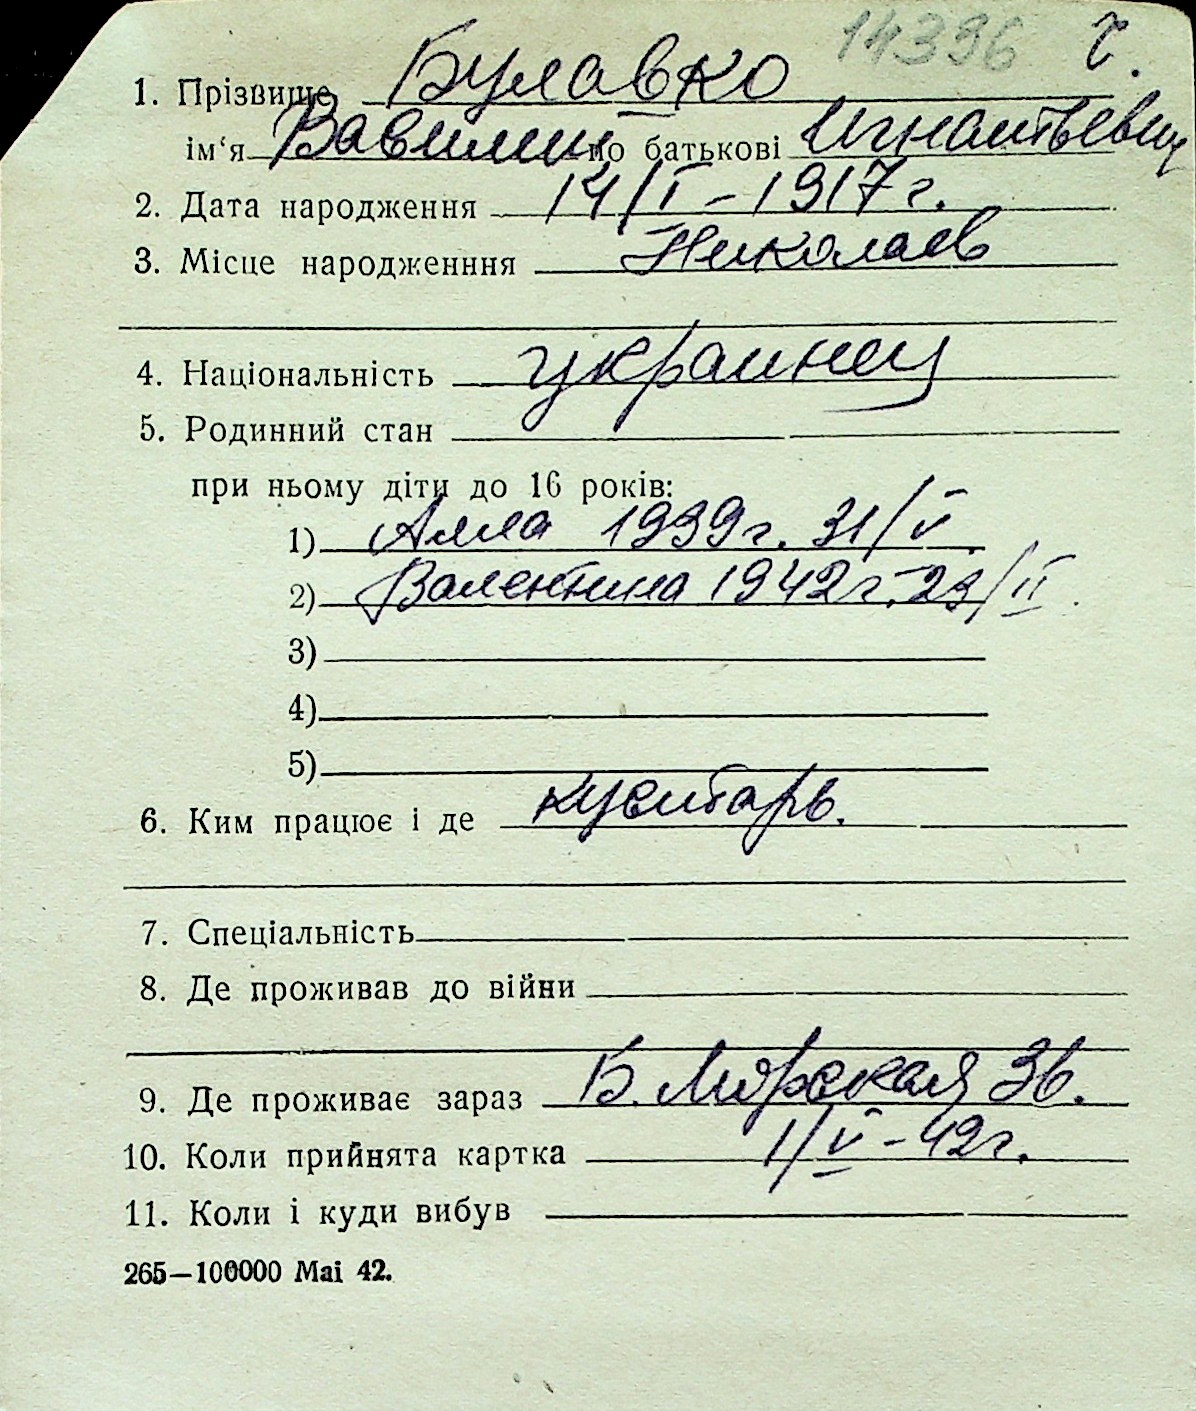 14396 г.
1. Прізвище Булавко
ім‘я Вавилий по батькові Игнатьевич
2. Дата народження 14/I – 1917 г.
3. Місце народженння Николаев
4. Національність украинец
5. Родинний стан
при ньому діти до 16 років:
1) Алла 1939 г. 31/V
2) Валентина 1942 г. 23/II.
3)
4)
5)
6. Ким працює і де кустарь.
7. Спеціальність
8. Де проживав до війни
9. Де проживає зараз Б. Морская 36.
10. Коли прийнята картка 1/V – 42 г.
11. Коли і куди вибув
265—100000 Mai 42.